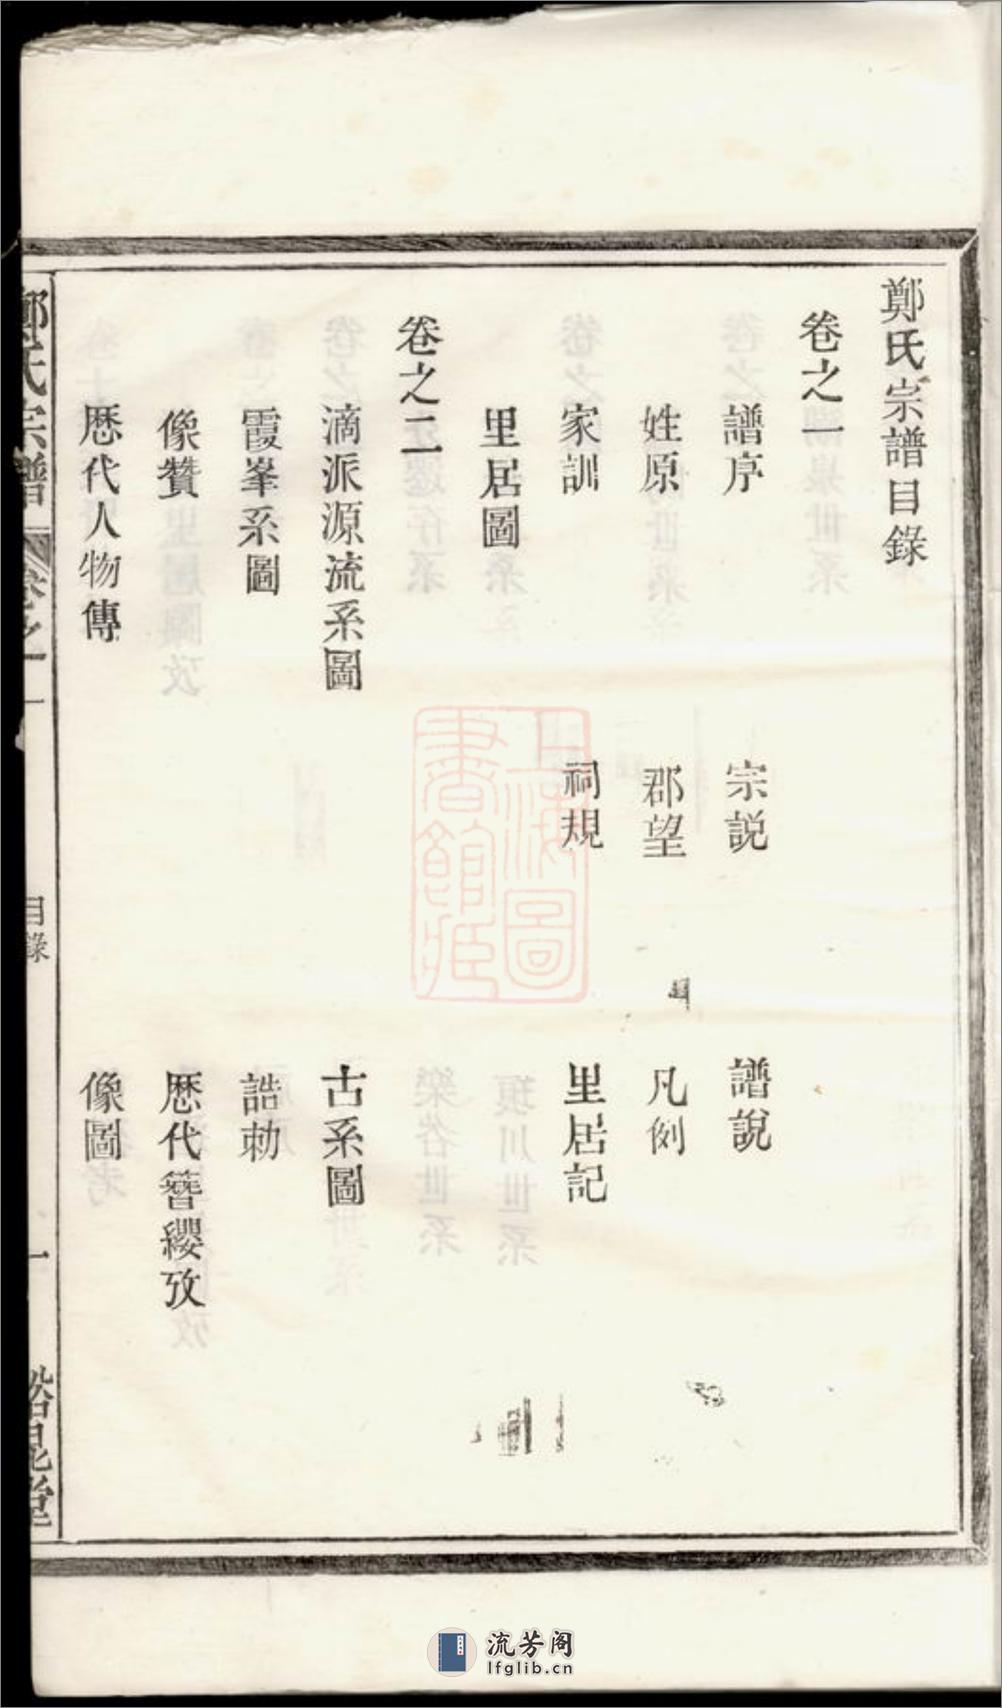 鄭氏宗譜目錄
卷之一
譜序 宗説 譜說
姓原 郡望 凡例
家訓 祠規 里居記
里居圖
卷之二
滴派源流系圖 古系圖
霞峯系圖 誥勅
像贊 歷代簪纓攷
歷代人物傳 像圖
鄭氏宗譜 卷之一 目錄 一
上海圖書館藏
流芳阁
lfglib.cn